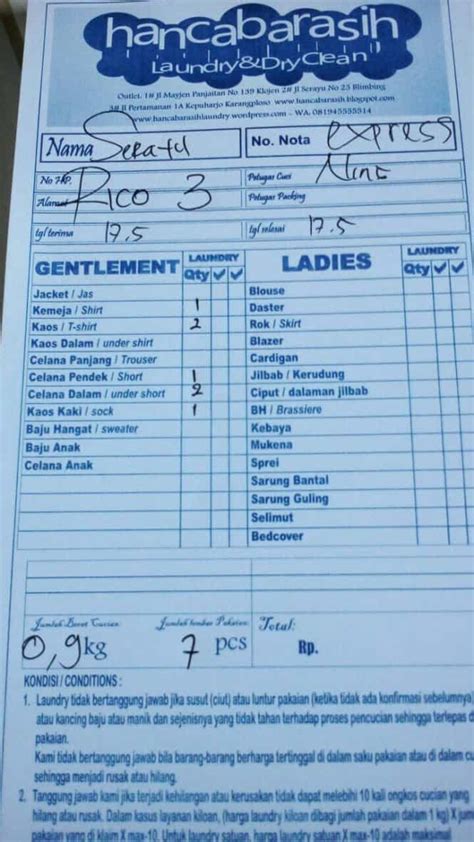 hancabarasih
Laundry & Dry Clean
Outlet. 1# Jl Mayjen Panjaitan No 139 Klojen 2# Jl Serayu No 23 Blimbing
3# Jl Pertamanan 1A Kepuharjo Karangploso www.hancabarasih.blogspot.com
www.hancabarasihlaundry.wordpress.com - WA. 081945555514
Nama No. Nota express
No HP. Rico 3 Petugas Cuci Nine
Alamat Petugas Packing
tgl terima 17.5 tgl selesai 17.5
GENTLEMENT LAUNDRY LADIES LAUNDRY
Qty Qty
Jacket / Jas Blouse
Kemeja / Shirt 1 Daster
Kaos / T-shirt 2 Rok / Skirt
Kaos Dalam / under shirt Blazer
Celana Panjang / Trouser Cardigan
Celana Pendek / Short 1 Jilbab / Kerudung
Celana Dalam / under short 2 Ciput / dalaman jilbab
Kaos Kaki / sock 1 BH / Brassiere
Baju Hangat / sweater Kebaya
Baju Anak Mukena
Celana Anak Sprei
Sarung Bantal
Sarung Guling
Selimut
Bedcover
Jumlah Berat Cucian Jumlah lembar Pakaian Total:
0,9 kg 7 pcs Rp.
KONDISI / CONDITIONS :
1. Laundry tidak bertanggung jawab jika susut (ciut) atau luntur pakaian (ketika tidak ada konfirmasi sebelumnya)
atau kancing baju atau manik dan sejenisnya yang tidak tahan terhadap proses pencucian sehingga terlepas
pakaian.
Kami tidak bertanggung jawab bila barang-barang berharga tertinggal di dalam saku pakaian atau di dalam
sehingga menjadi rusak atau hilang.
2. Tanggung jawab kami jika terjadi kehilangan atau kerusakan tidak dapat melebihi 10 kali ongkos cucian yang
hilang atau rusak. Dalam kasus layanan kiloan, (harga laundry kiloan dibagi jumlah pakaian dalam 1 kg) X
pakaian yang di klaim X max-10. Untuk laundry satuan, harga laundry satuan X max-10 adalah maksimal